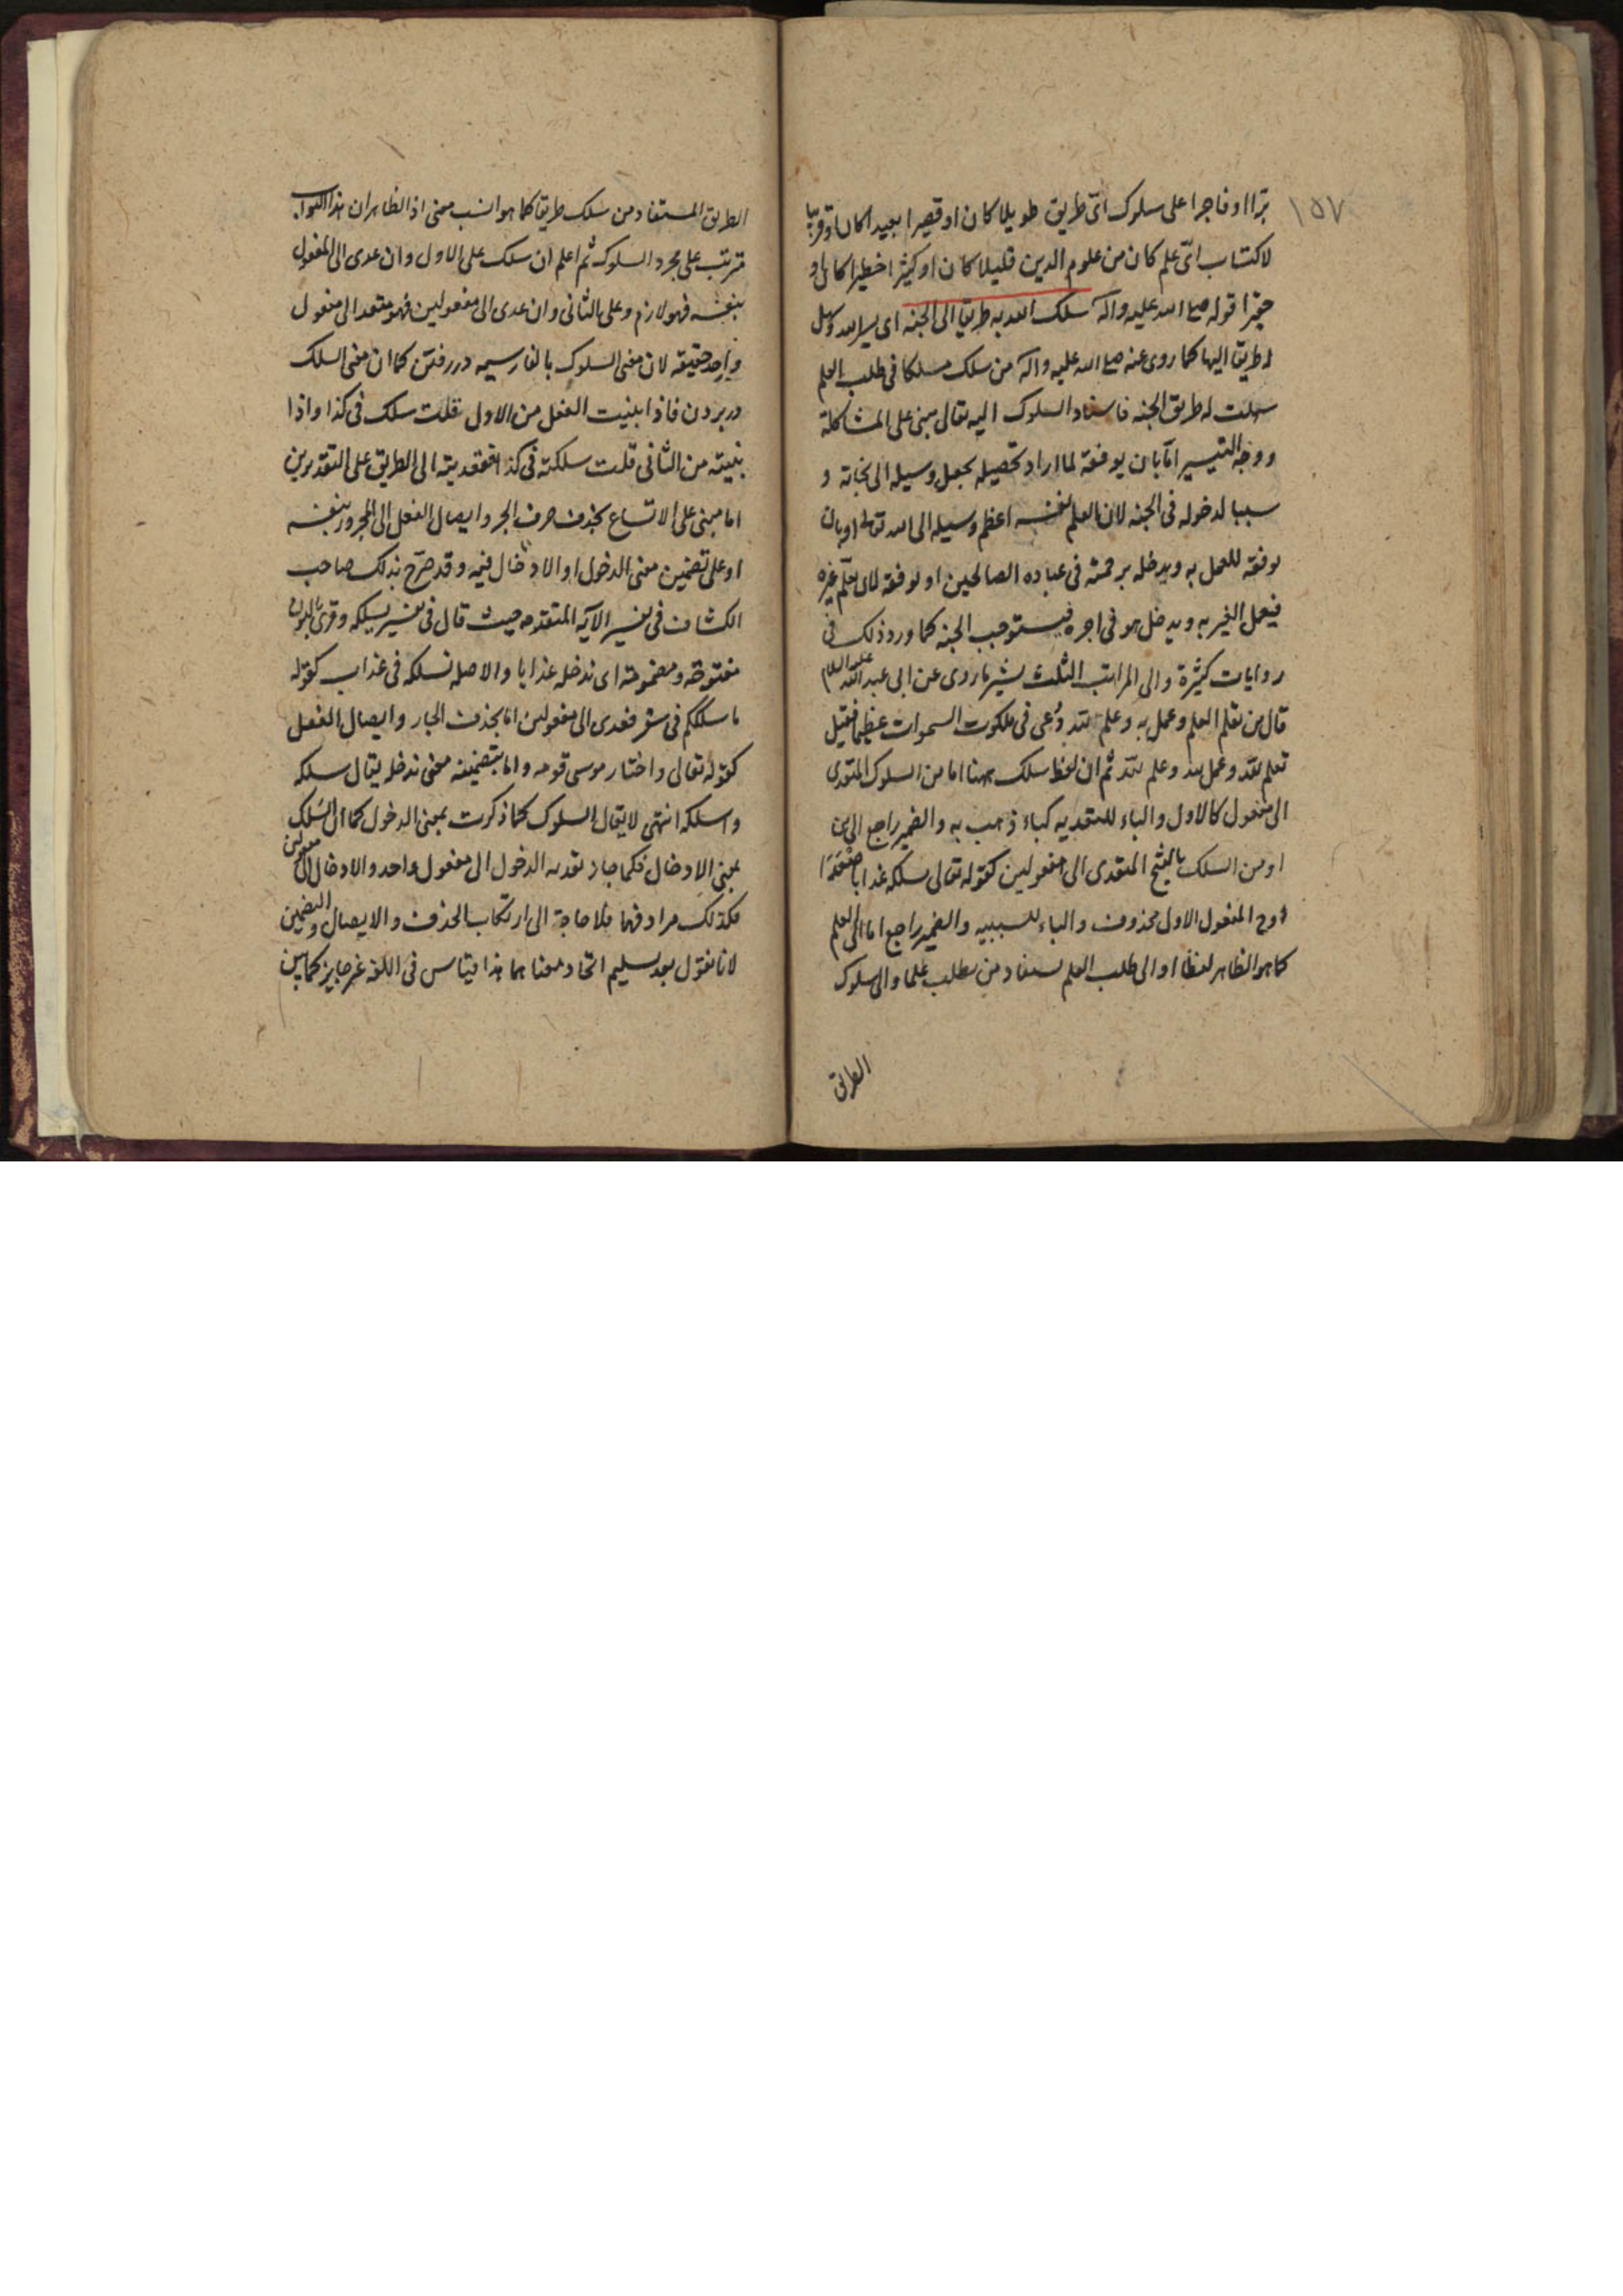 ١٥٧
برّا او فاجرا على سلوك ائ طريق طويلا كان او قصيرا بعيدا كان او قريبا
لاكتساب ائ علم كان من علوم الدين قليلا كان او كثيرا خطيرا كان او
حقيرا قوله صلع الله عليه واله سلك الله به طريقا الى الجنه اى يسر الله وسهل
له طريقا اليها كما روى عنه صلع الله عليه واله من سلك مسلكا فى طلب العلم
سهلت له طريق الجنه فاسناد السلوك اليه تعالى مبنى على المشاكلة
ووجه التيسير امّا بان يوفقه لما اراد تحصيله بجعله وسيله الى نجاته و
سببا لدخوله فى الجنه لان العلم بنفسه اعظم وسيله الى الله تعالى او بان
يوفقه للعمل به ويدخله برحمته فى عباده الصالحين او يوفقه لان يعلّم غيره
فيعمل الغير به ويدخل هو فى اجره فيستوجب الجنه كما ورد ذلك فى
روايات كثيرة والى المراتب الثلث يشير ما روى عن ابى عبد الله عليه السلام
قال من تعلم العلم وعمل به وعلم لله دُعى فى ملكوت السموات عظيما فقيل
تعلم لله وعمل لله وعلم لله ثم ان لفظ سلك ههنا اما من السلوك المتعدى
الى مفعول كالاول والباء للتعديه كباء ذهب به والضمير راجع الى من
او من السلك بالفتح المتعدى الى مفعولين كقوله تعالى سلكه عذابا صعدا
وح المفعول الاول محذوف والباء للسببيه والضمير راجع اما الى العلم
كما هو الظاهر لفظا او الى طلب العلم المستفاد من يطلب علما والى سلوك
الطريق
الطريق المستفاد من سلك طريقا كما هو انسب معنى اذ الظاهر ان هذا الثواب
مترتب على مجرد السلوك ثم اعلم ان سلك على الاول وان عدى الى المفعول
بنفسه فهو لازم وعلى الثانى وان عدى الى مفعولين فهو متعد الى مفعول
واحد حقيقه لان معنى السلوك بالفارسيه در رفتن كما ان معنى السلك
در بردن فاذا بنيت الفعل من الاول قلت سلك فى كذا واذا
بنيته من الثانى قلت سلكته فى كذا فتعديته الى الطريق على التقديرين
اما مبنى على الاتساع بحذف حرف الجر وايصال الفعل الى المجرور بنفسه
او على تضمين معنى الدخول او الادخال فيه وقد صرّح بذلك صاحب
الكشاف فى تفسير الآيه المتقدمه حيث قال فى تفسير يسلكه وقرئ بالنون
مفتوحة ومضمومة اى ندخله عذابا والاصل نسلكه فى عذاب كقوله
ما سلككم فى سقر فعدى الى مفعولين اما بحذف الجار وايصال الفعل
كقوله تعالى واختار موسى قومه واما بتضمينه معنى ندخله يقال سلكه
واسلكه انتهى لا يقال السلوك كما ذكرت بمعنى الدخول كما ان السلك
بمعنى الادخال فكما جاز تعديه الدخول الى مفعول واحد والادخال الى مفعولين
فكذلك مرادفهما فلا حاجة الى ارتكاب الحذف والايصال والتضمين
لانا نقول بعد تسليم اتحاد معناهما هذا قياس فى اللغه غير جايز كما بين